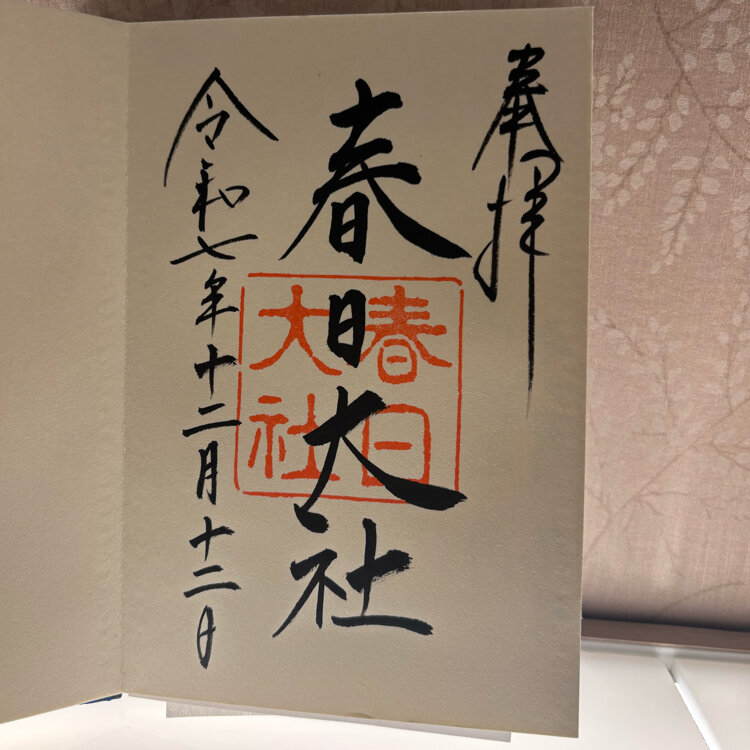 奉拝
春日大社
春日
大社
令和七年十二月十二日